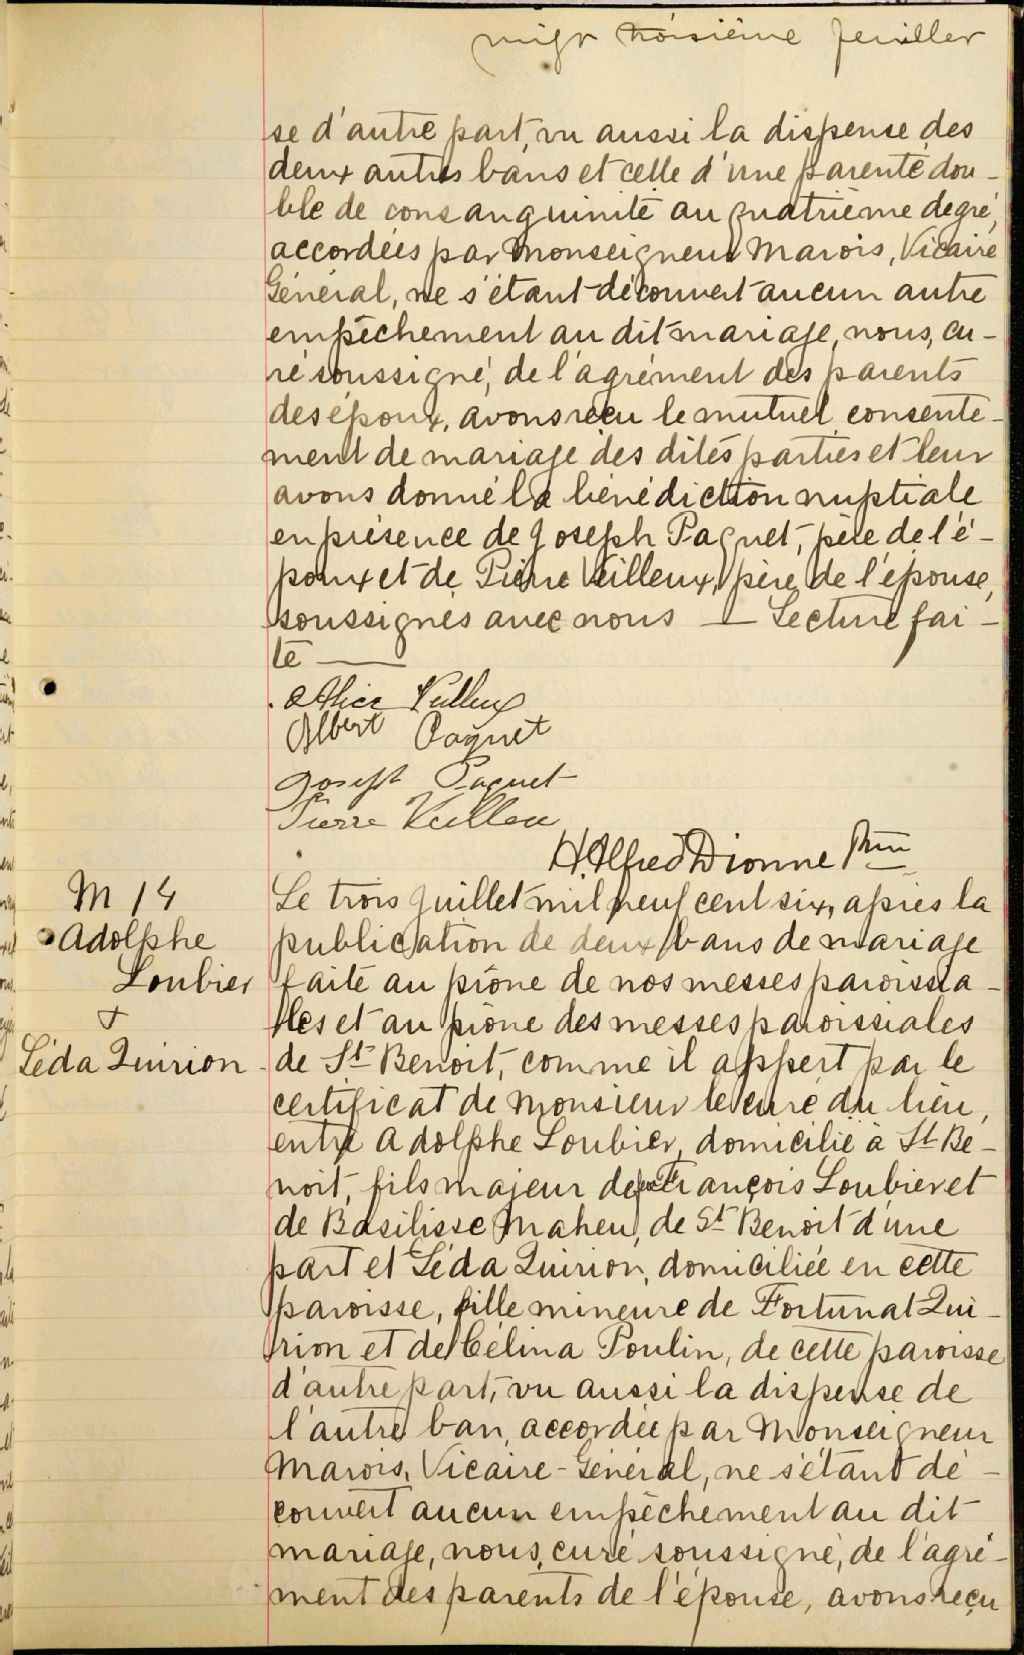 vingt troisième feuillet
se d'autre part, vu aussi la dispense des
deux autres bans et celle d'une parenté dou-
ble de consanguinité au quatrième degré,
accordées par Monseigneur Marois, Vicaire
Général, ne s'étant découvert aucun autre
empêchement au dit mariage, nous, cu-
ré soussigné, de l'agrément des parents
des époux, avons reçu le mutuel consente-
ment de mariage des dites parties et leur
avons donné la bénédiction nuptiale
en présence de Joseph Paquet, père de l'é-
poux et de Pierre Veilleux, père de l'épouse,
soussignés avec nous — Lecture fai-
te —
Alice Veilleux
Albert Paquet
Joseph Paquet
Pierre Veilleu
H. Alfred Dionne Ptre
M 14
Adolphe
Loubier
&
Léda Quirion
Le trois Juillet mil neuf cent six, après la
publication de deux bans de mariage
faite au prône de nos messes paroissia-
les et au prône des messes paroissiales
de St Benoit, comme il appert par le
certificat de Monsieur le curé du lieu,
entre Adolphe Loubier, domicilié à St Be-
noit, fils majeur de feu François Loubier et
de Basilisse Maheu, de St Benoit d'une
part et Léda Quirion, domiciliée en cette
paroisse, fille mineure de Fortunat Qui-
rion et de Célina Poulin, de cette paroisse
d'autre part, vu aussi la dispense de
l'autre ban, accordée par Monseigneur
Marois, Vicaire-Général, ne s'étant dé-
couvert aucun empêchement au dit
mariage, nous, curé soussigné, de l'agré-
ment des parents de l'épouse, avons reçu